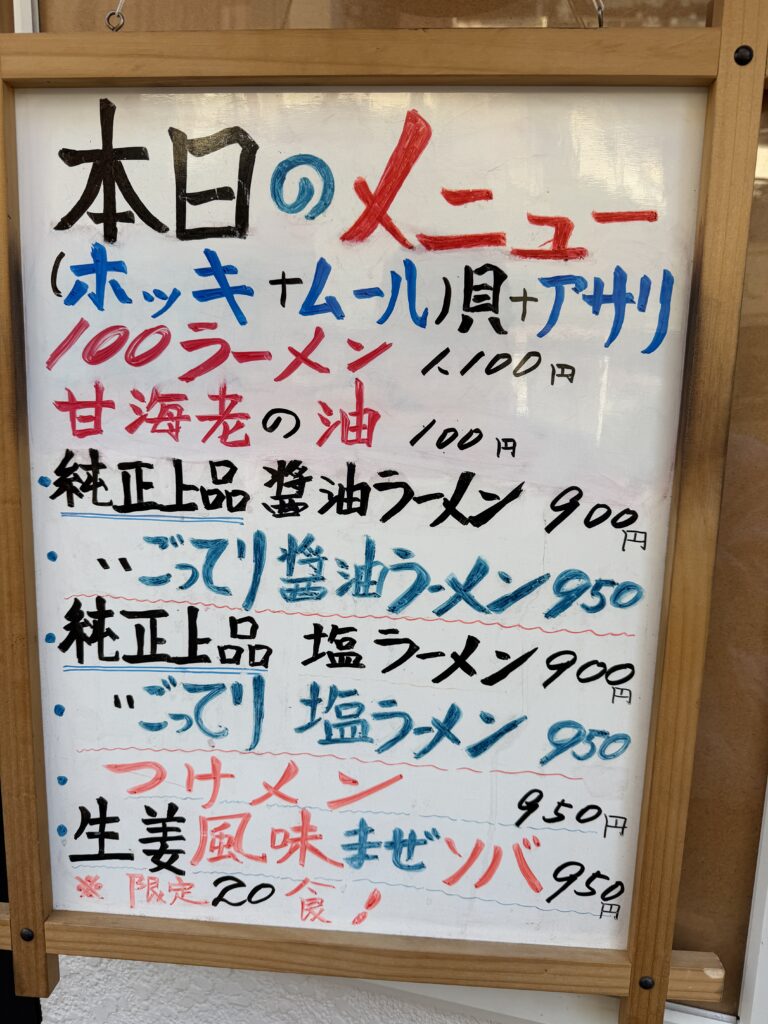 本日のメニュー
(ホッキ+ムール)貝+アサリ
100ラーメン 1,100円
甘海老の油 100円
・純正上品 醤油ラーメン 900円
・〃ごってり醤油ラーメン 950
・純正上品 塩ラーメン 900円
・〃ごってり 塩ラーメン 950
・つけメン 950円
・生姜風味まぜソバ 950円
※限定20食!